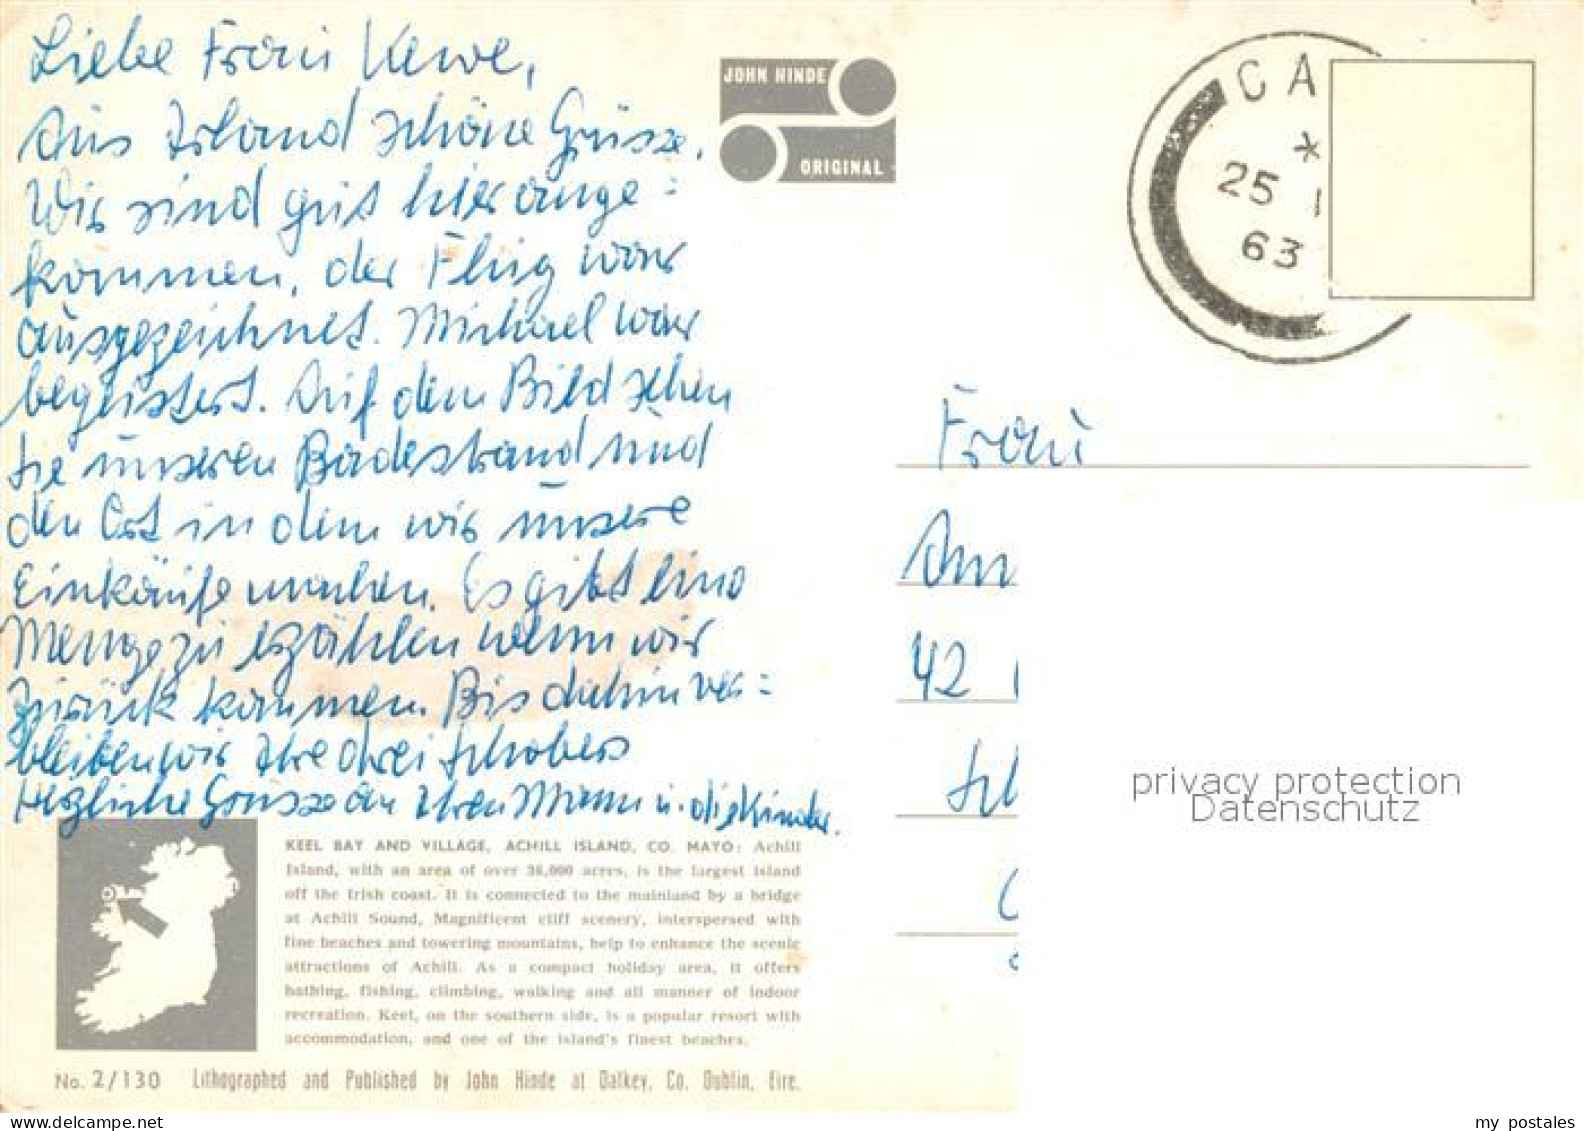 Liebe Frau Kewe,
aus Irland schöne Grüsse.
Wir sind gut hier ange=
kommen, der Flug war
ausgezeichnet. Michael war
begeistert. Auf dem Bild sehen
Sie unseren Badestrand und
den Ort in dem wir unsere
Einkäufe machen. Es gibt eine
Menge zu erzählen wenn wir
zurück kommen. Bis dahin ver=
bleiben wir Ihre drei Schobers
Herzliche Grüsse an Ihren Mann u. die Kinder.
JOHN HINDE
ORIGINAL
CA
*
25
63
Frau
42
privacy protection
Datenschutz
KEEL BAY AND VILLAGE, ACHILL ISLAND, CO. MAYO: Achill
Island, with an area of over 36,000 acres, is the largest island
off the Irish coast. It is connected to the mainland by a bridge
at Achill Sound, Magnificent cliff scenery, interspersed with
fine beaches and towering mountains, help to enhance the scenic
attractions of Achill. As a compact holiday area, it offers
bathing, fishing, climbing, walking and all manner of indoor
recreation. Keel, on the southern side, is a popular resort with
accommodation, and one of the island's finest beaches.
No. 2/130 Lithographed and Published by John Hinde at Dalkey, Co. Dublin, Eire.
www.delcampe.net
my postales